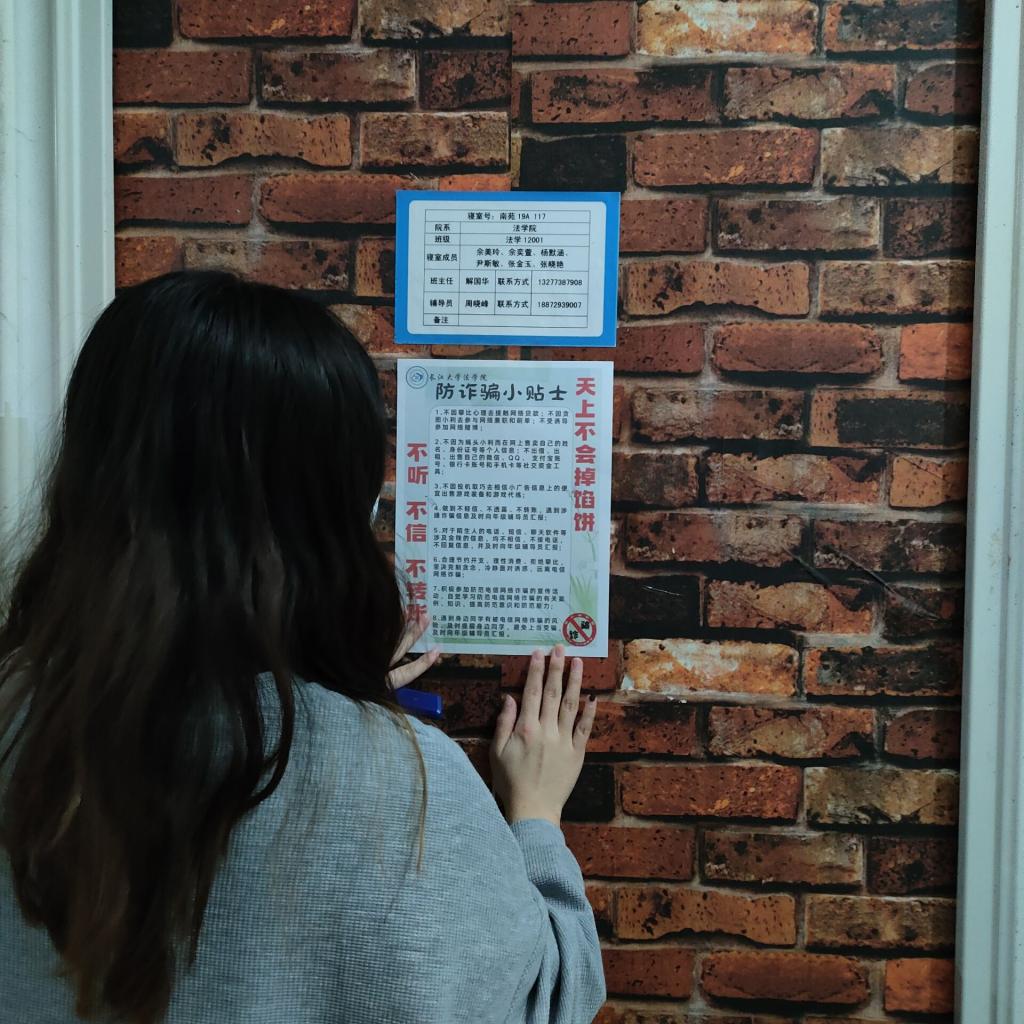 寝室号：南苑 19A 117
院系 法学院
班级 法学 12001
寝室成员 余美玲、余奕萱、杨默涵、
尹斯敏、张金玉、张晓艳
班主任 解国华 联系方式 13277387908
辅导员 周晓峰 联系方式 18872939007
备注
长江大学法学院
防诈骗小贴士
天上不会掉馅饼
不听 不信 不转账
1.不因攀比心理去接触网络贷款；不因贪
图小利去参与网络兼职和刷单；不受诱导
参加网络赌博；
2.不因为蝇头小利而在网上售卖自己的姓
名、身份证号等个人信息；不出借、出
租、出售自己的微信、QQ、支付宝账
号、银行卡账号和手机卡等社交资金工
具；
3.不因投机取巧去相信小广告信息上的便
宜出售游戏装备和游戏代练；
4.做到不轻信、不透露、不转账，遇到涉
嫌诈骗信息及时向年级辅导员汇报；
5.对于陌生人的电话、短信、聊天软件等
涉及金钱的信息，均不相信，不接电话，
不回复信息，并及时向年级辅导员汇报；
6.合理节约开支，理性消费、拒绝攀比，
坚决克制贪念，冷静面对诱惑，远离电信
网络诈骗；
7.积极参加防范电信网络诈骗的宣传活
动，自觉学习防范电信网络诈骗的有关案
例、知识，提高防范意识和防范能力；
8.遇到身边同学有被电信网络诈骗的风
险，及时提醒身边同学，避免上当受骗，
及时向年级辅导员汇报。
诈骗